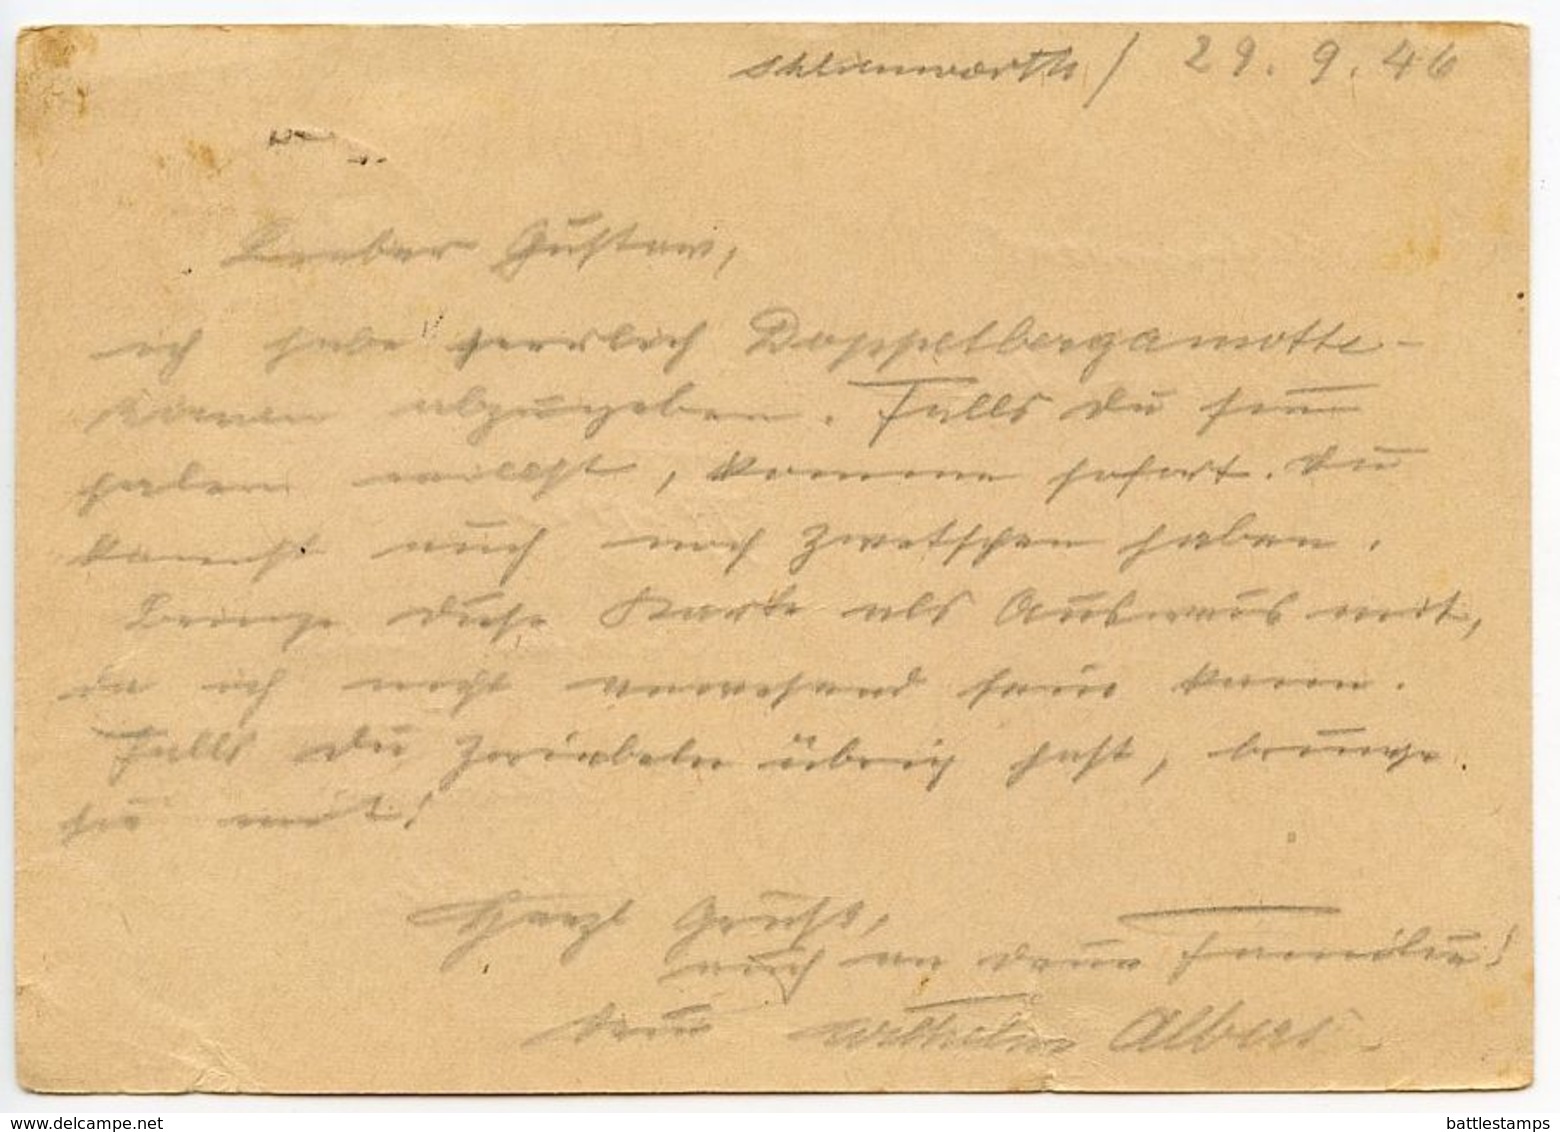 Schlierwarth / 29.9.46
Lieber Gustav,
ich habe herrlich Doppelbergamotte-
birnen abzugeben. Falls du sie
haben willst, komme sofort. Du
kannst auch noch Zwetschen haben.
Bringe diese Karte als Ausweis mit,
da ich nicht anwesend sein kann.
Falls du Zwiebeln übrig hast, bringe
sie mit!
Herzl Grüße,
auch an deine Familie!
Dein Wilhelm Albert.
battlestamps